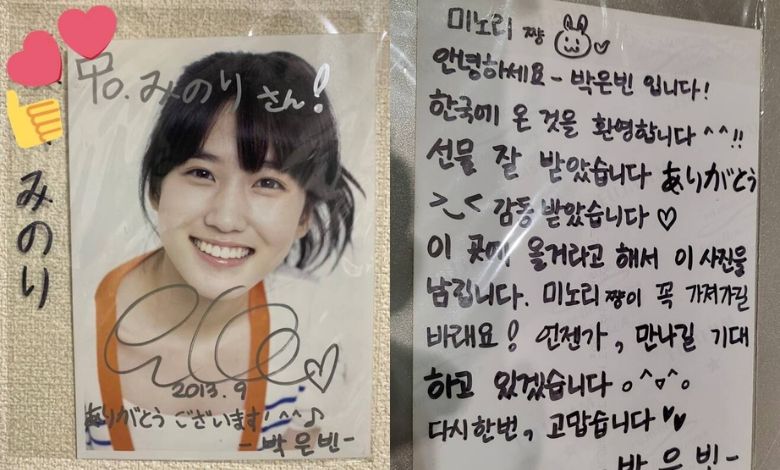 To. みのり さん!
みのり
2013. 9
ありがとう ございます! ^^♪
- 박은빈 -
미노리 쨩
안녕하세요 - 박은빈 입니다!
한국에 온 것을 환영합니다 ^^!!
선물 잘 받았습니다 ありがとう
>_< 감동 받았습니다 ♡
이 곳에 올거라고 해서 이 사진을
남깁니다. 미노리 쨩이 꼭 가져가길
바래요! 언젠가, 만나길 기대
하고 있겠습니다 o^ㅁ^o
다시 한번, 고맙습니다 ♥♥
박은빈 -